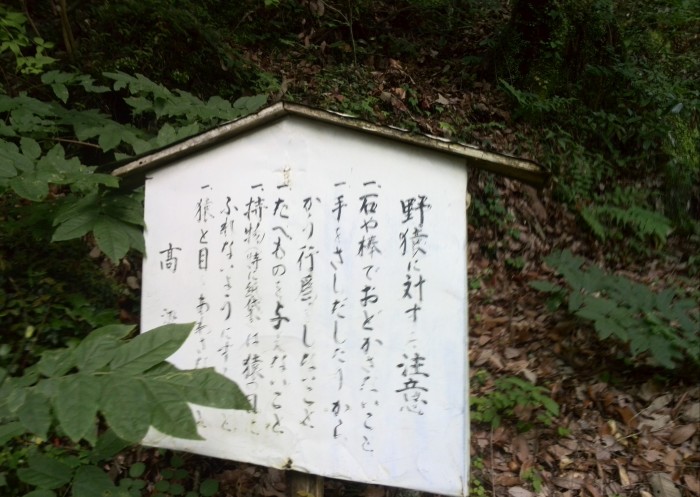 野猿に対する注意
一、石や棒でおどかさないこと
一、手をさしだしたりから
かう行為をしないこと
一、たべものを与えないこと
一、持物 は猿の目に
ふれないようにすること
一、猿と目をあわさない
高